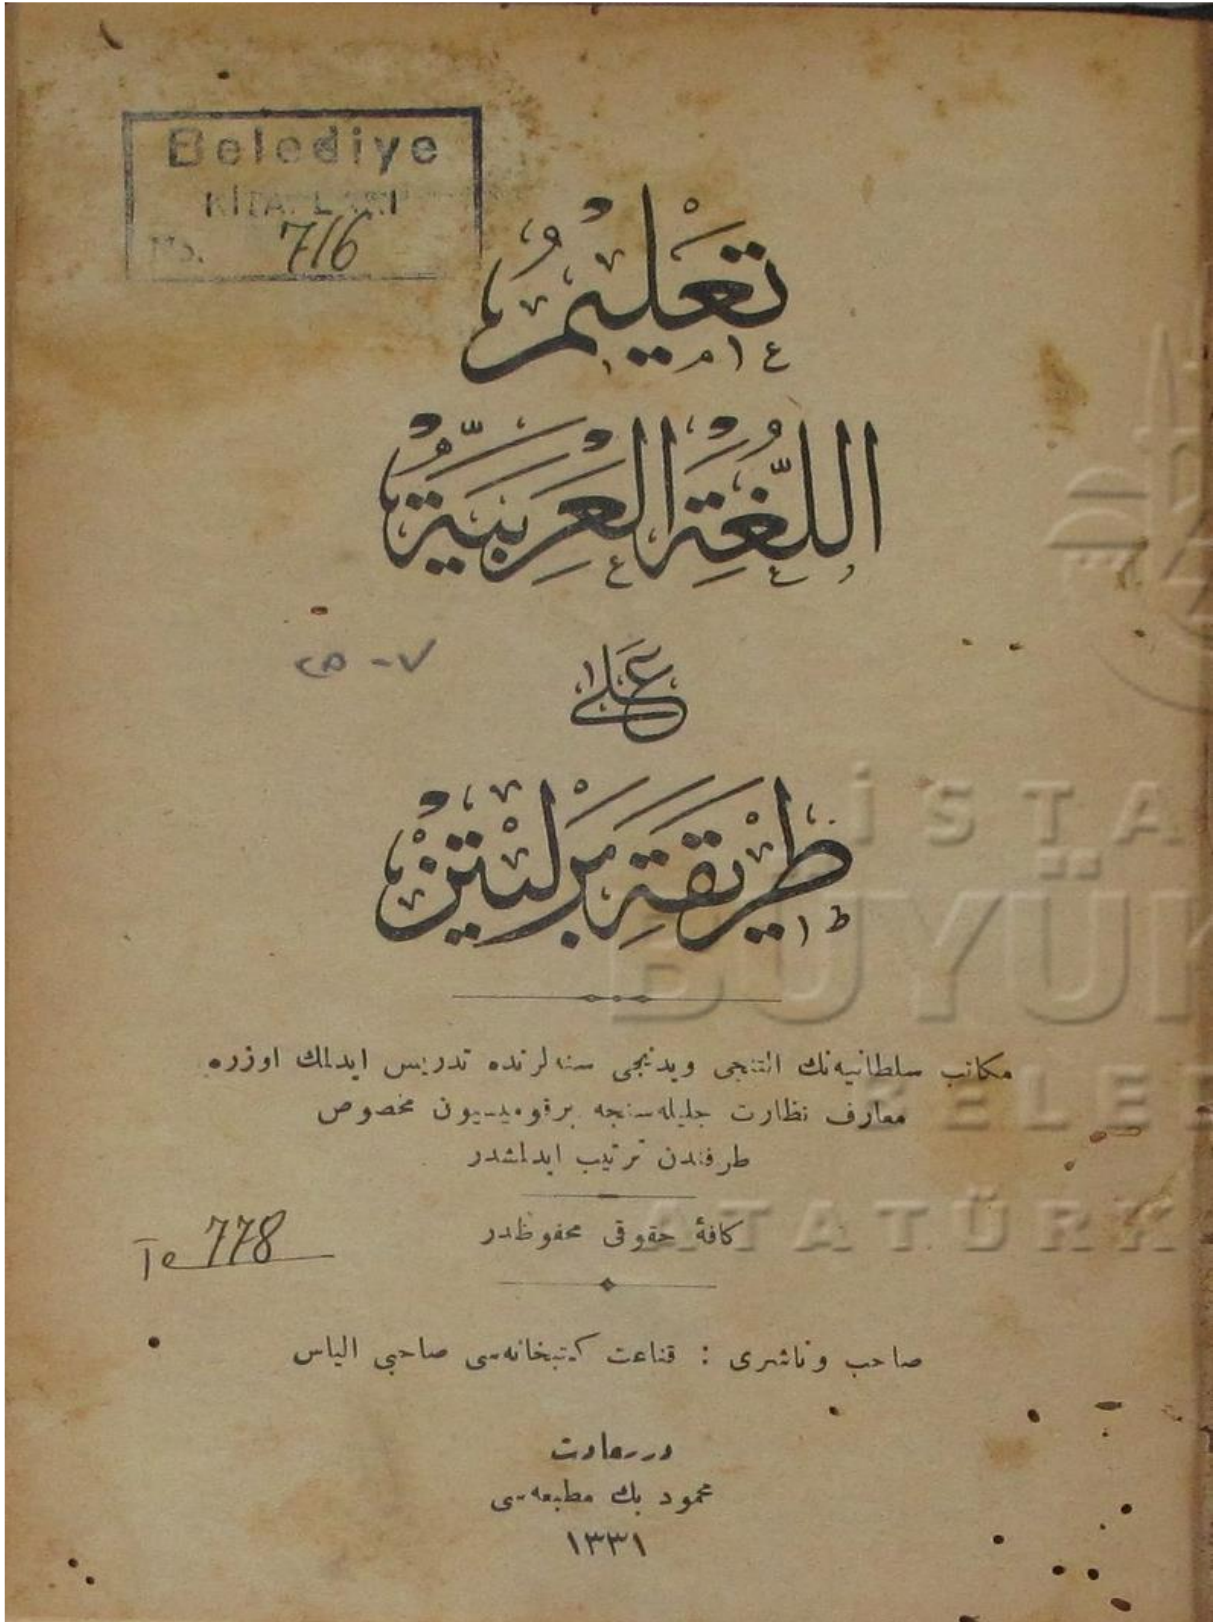 Belediye
KİTAPLARI
No. 716
تَعْلِيمُ
اللُّغَةِ الْعَرَبِيَّةِ
عَلَى
طَرِيقَةِ بَرْلِيتِزْ
مكاتب سلطانیه‌نك التنجی ویدنجی سنه‌لرنده تدریس ایدلمك اوزره
معارف نظارت جلیله‌سنجه بر قومیسیون مخصوص
طرفندن ترتیب ایدلمشدر
كافهٔ حقوقی محفوظدر
Te 778
صاحب وناشری : قناعت كتبخانه‌سی صاحبی الیاس
درسعادت
محمود بك مطبعه‌سی
١٣٣١
İSTA
BÜYÜK
BELE
ATATÜRK